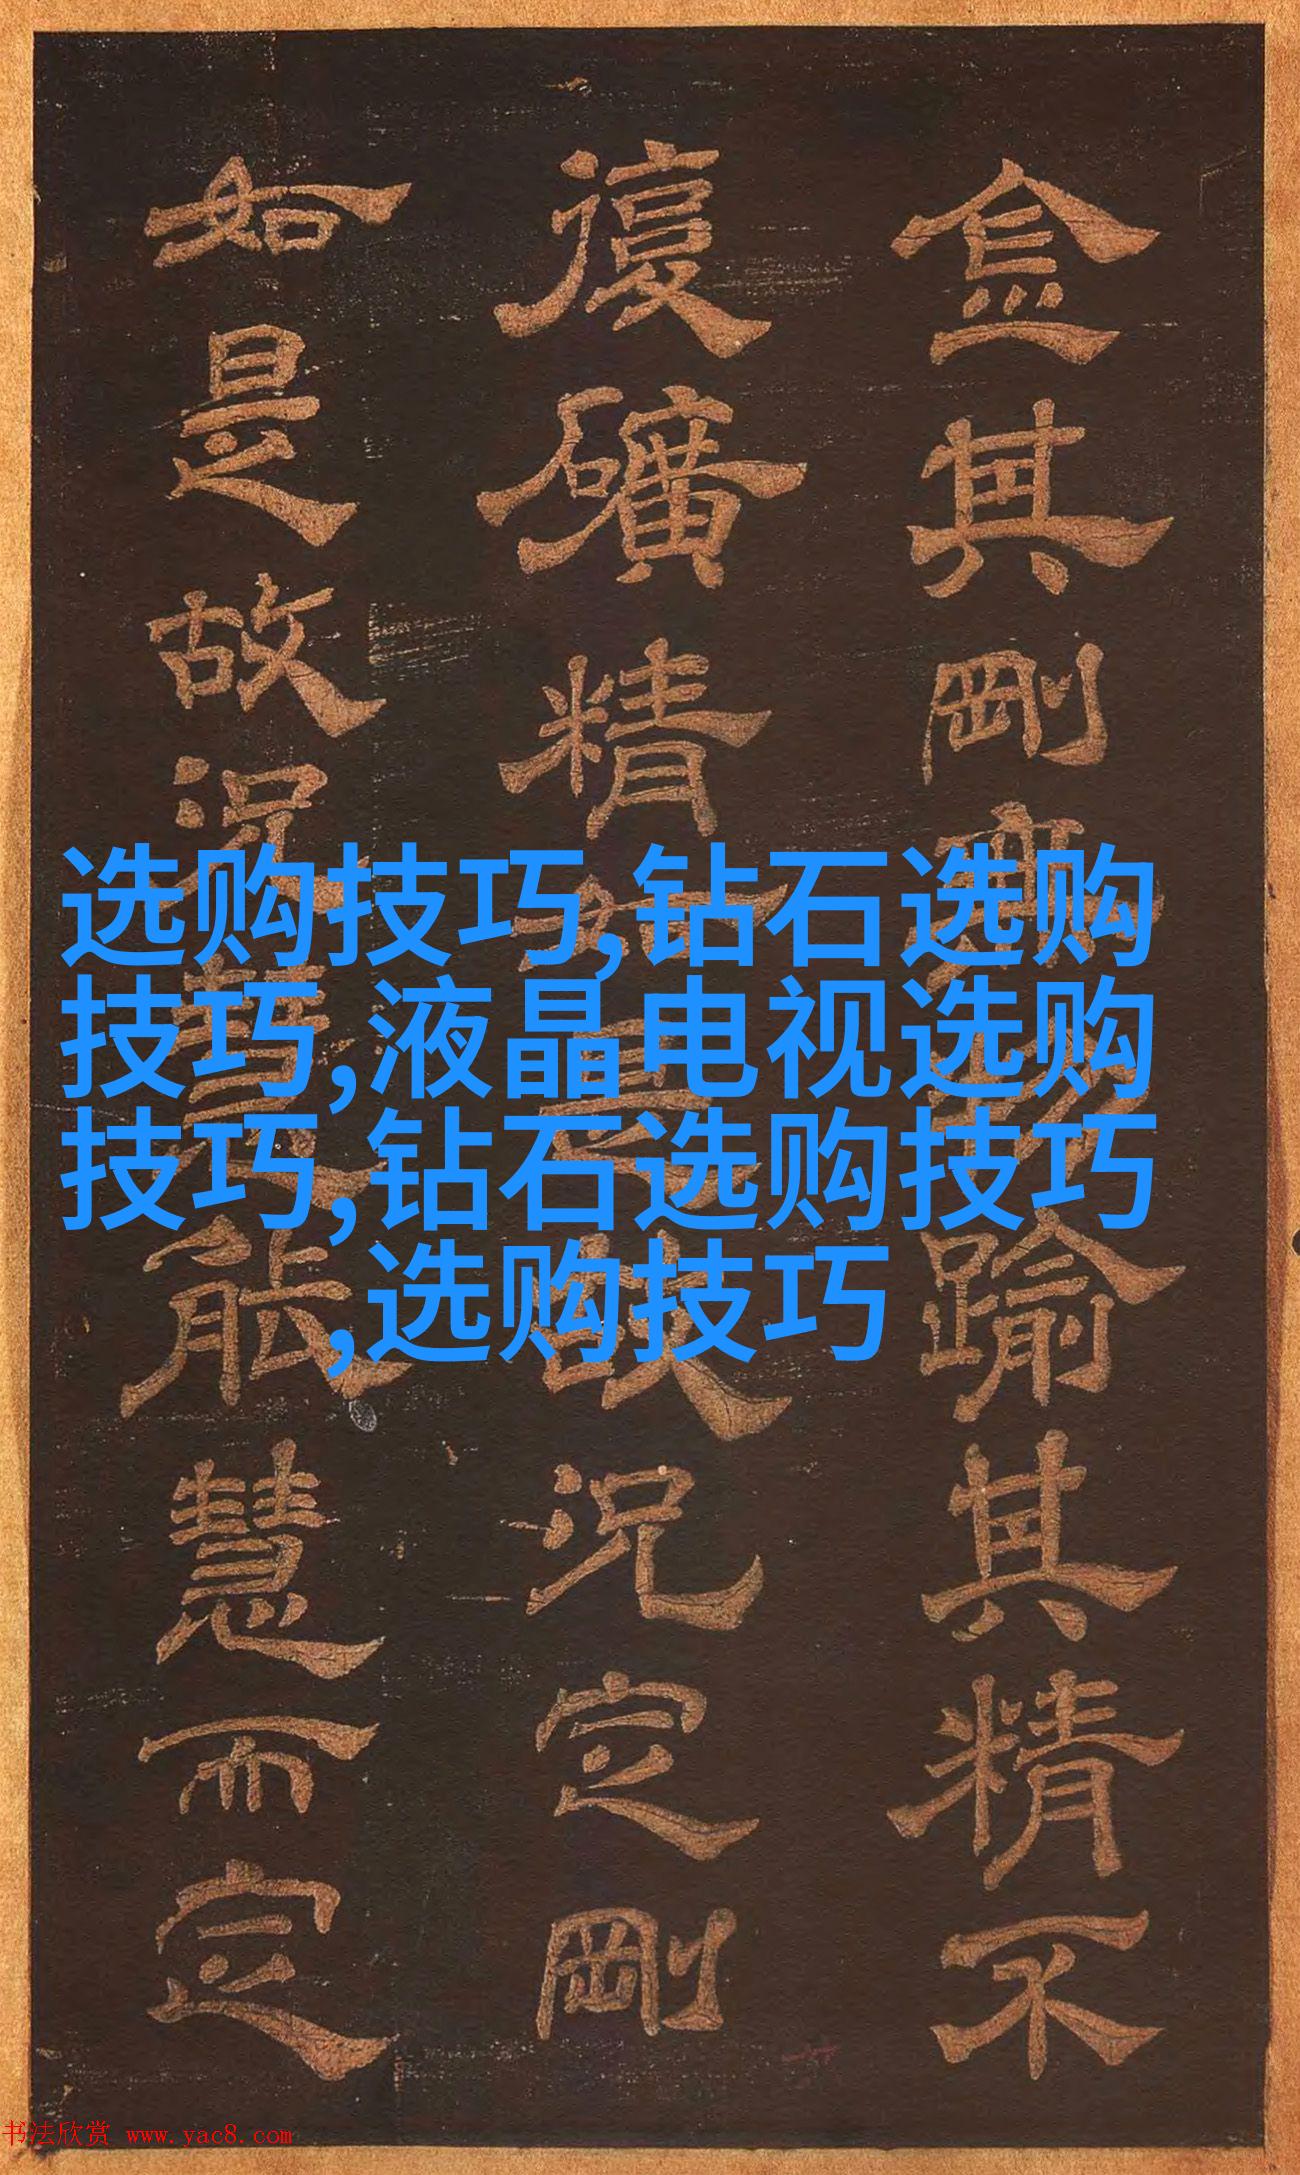 选购技巧,钻石选购
技巧,液晶电视选购
技巧,钻石选购技巧
,选购技巧
其剛踰其精不
復礦精故況定剛
如是故況能慧而定
书法欣赏 www.yac8.com